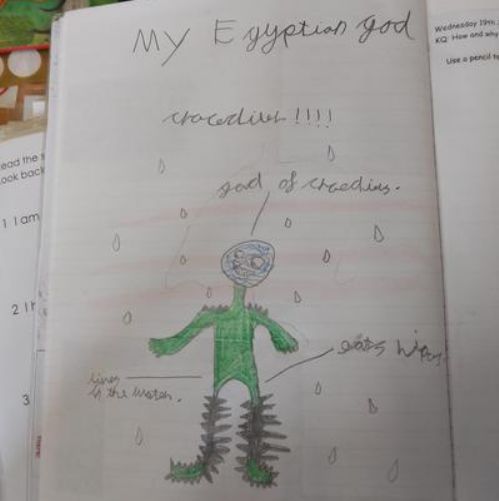 My Egyptian god
crocodiles !!!!
god of
lives
in the water.
eats
Wednesday 19th
KQ: How and why
Use a pencil to
ead the s
ook back
1 I am
2 I
3